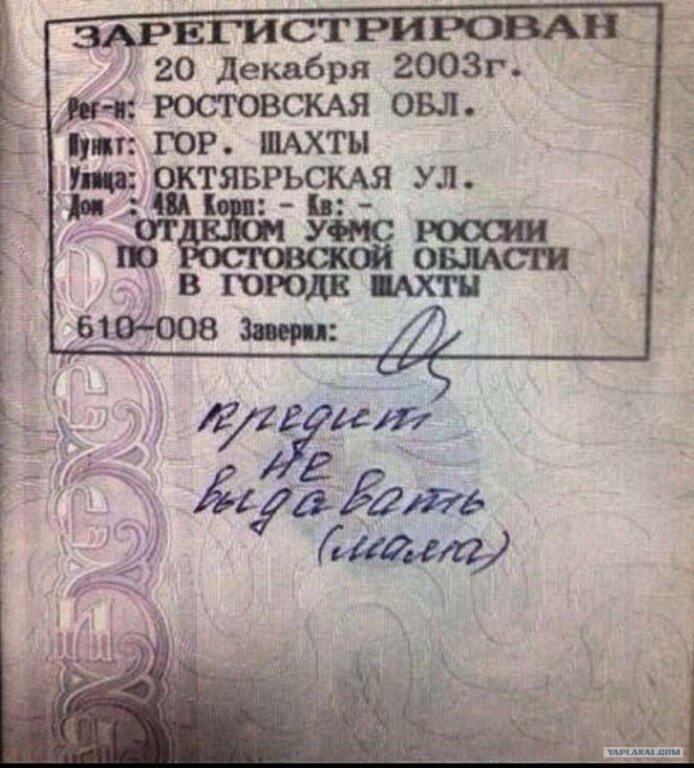 ЗАРЕГИСТРИРОВАН
20 Декабря 2003г.
Рег-н: РОСТОВСКАЯ ОБЛ.
Пункт: ГОР. ШАХТЫ
Улица: ОКТЯБРЬСКАЯ УЛ.
Дом : 48А Корп: - Кв: -
ОТДЕЛОМ УФМС РОССИИ
ПО РОСТОВСКОЙ ОБЛАСТИ
В ГОРОДЕ ШАХТЫ
610-008 Заверил:
кредит
не
выдавать
(мама)
YAPLAKAL.COM